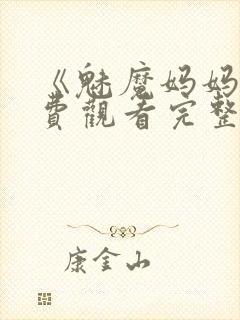 《魅魔妈妈
費觀看完整
康金山